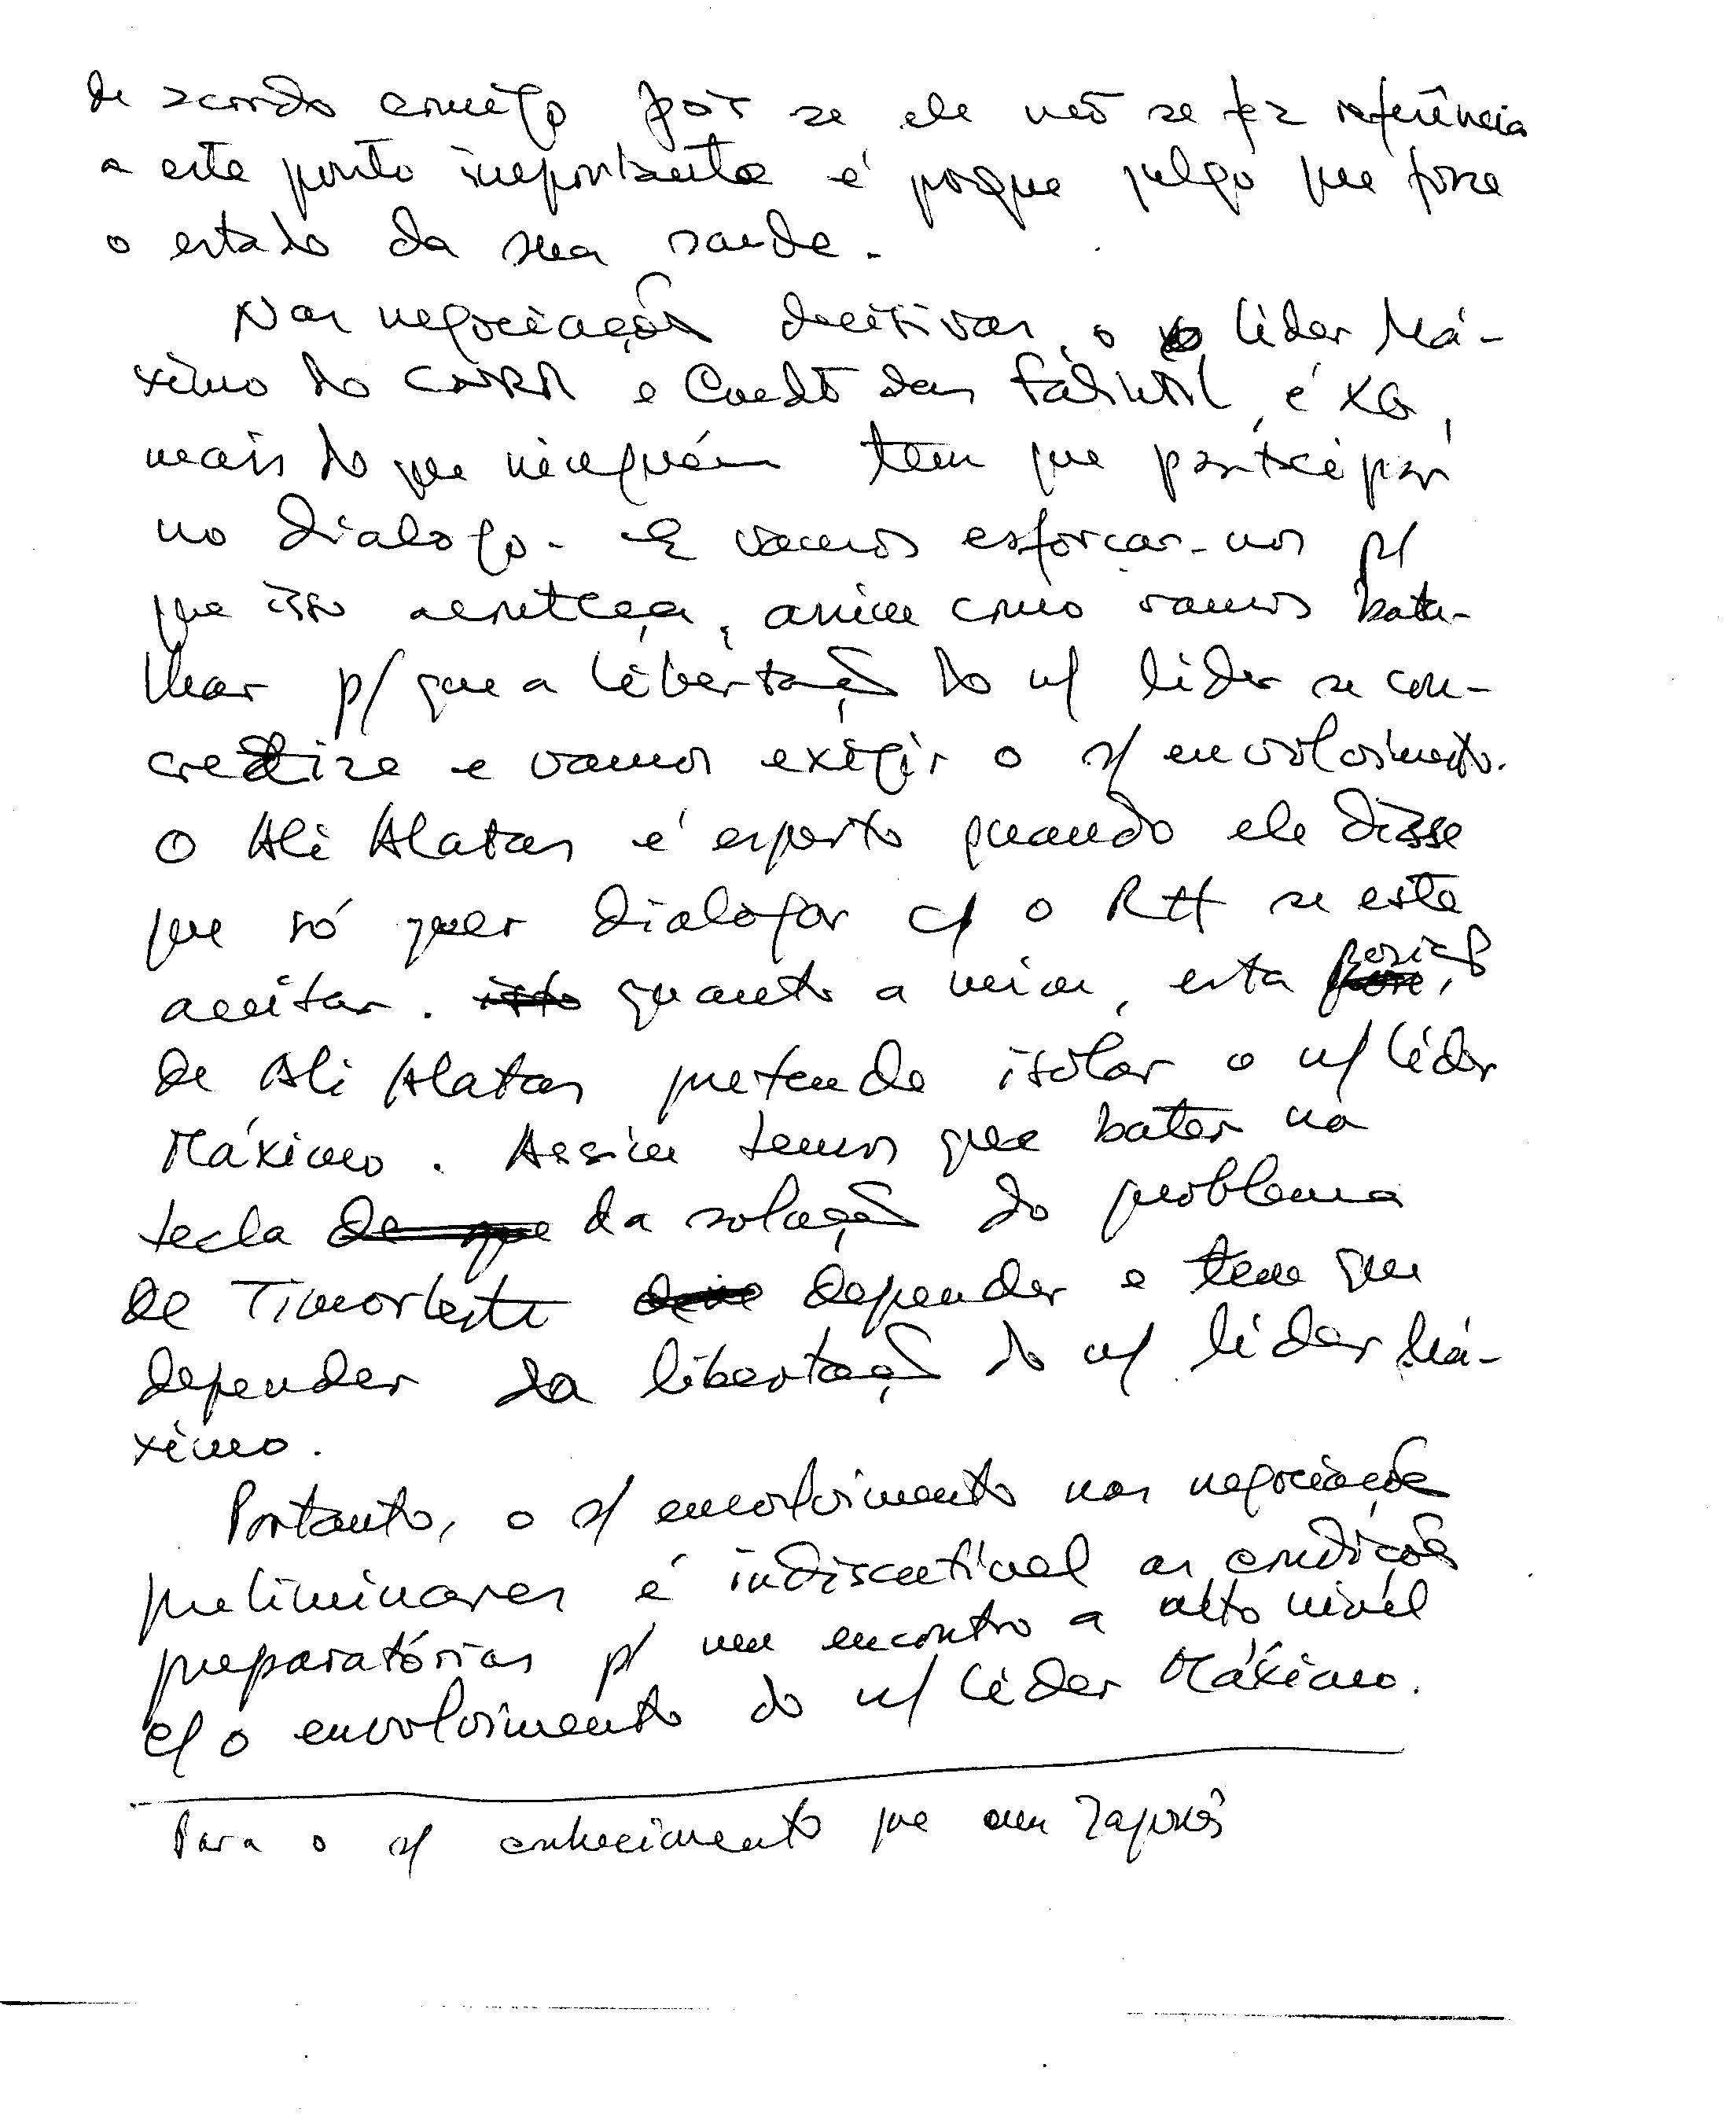 de acordo comigo pois se ele não se fez referência
a este ponto importante é porque julgo que fosse
o estado da sua saude.
Nas negociações decisivas, o líder Má-
ximo do CNRM e Cmdt das Falintil, é XG,
mais do que ninguém tem que participar
no dialogo. E vamos esforçar-nos p/
que isso aconteça, assim como vamos bata-
lhar p/ que a libertação do n/ líder se con-
cretize e vamos exigir o s/ envolvimento.
O Ali Alatas é esperto quando ele disse
que só quer dialogar c/ o RH se este
aceitar. quanto a mim, esta posição
de Ali Alatas pretende isolar o n/ líder
Máximo. Assim temos que bater na
tecla da solução do problema
de Timorleste depender e tem que
depender da libertação do n/ líder Má-
ximo.
Portanto, o s/ envolvimento nas negociações
preliminares é indiscutível as condições
preparatórias p/ um encontro a alto nível
c/ o envolvimento do n/ líder Máximo.
Para o s/ conhecimento que um Japonês